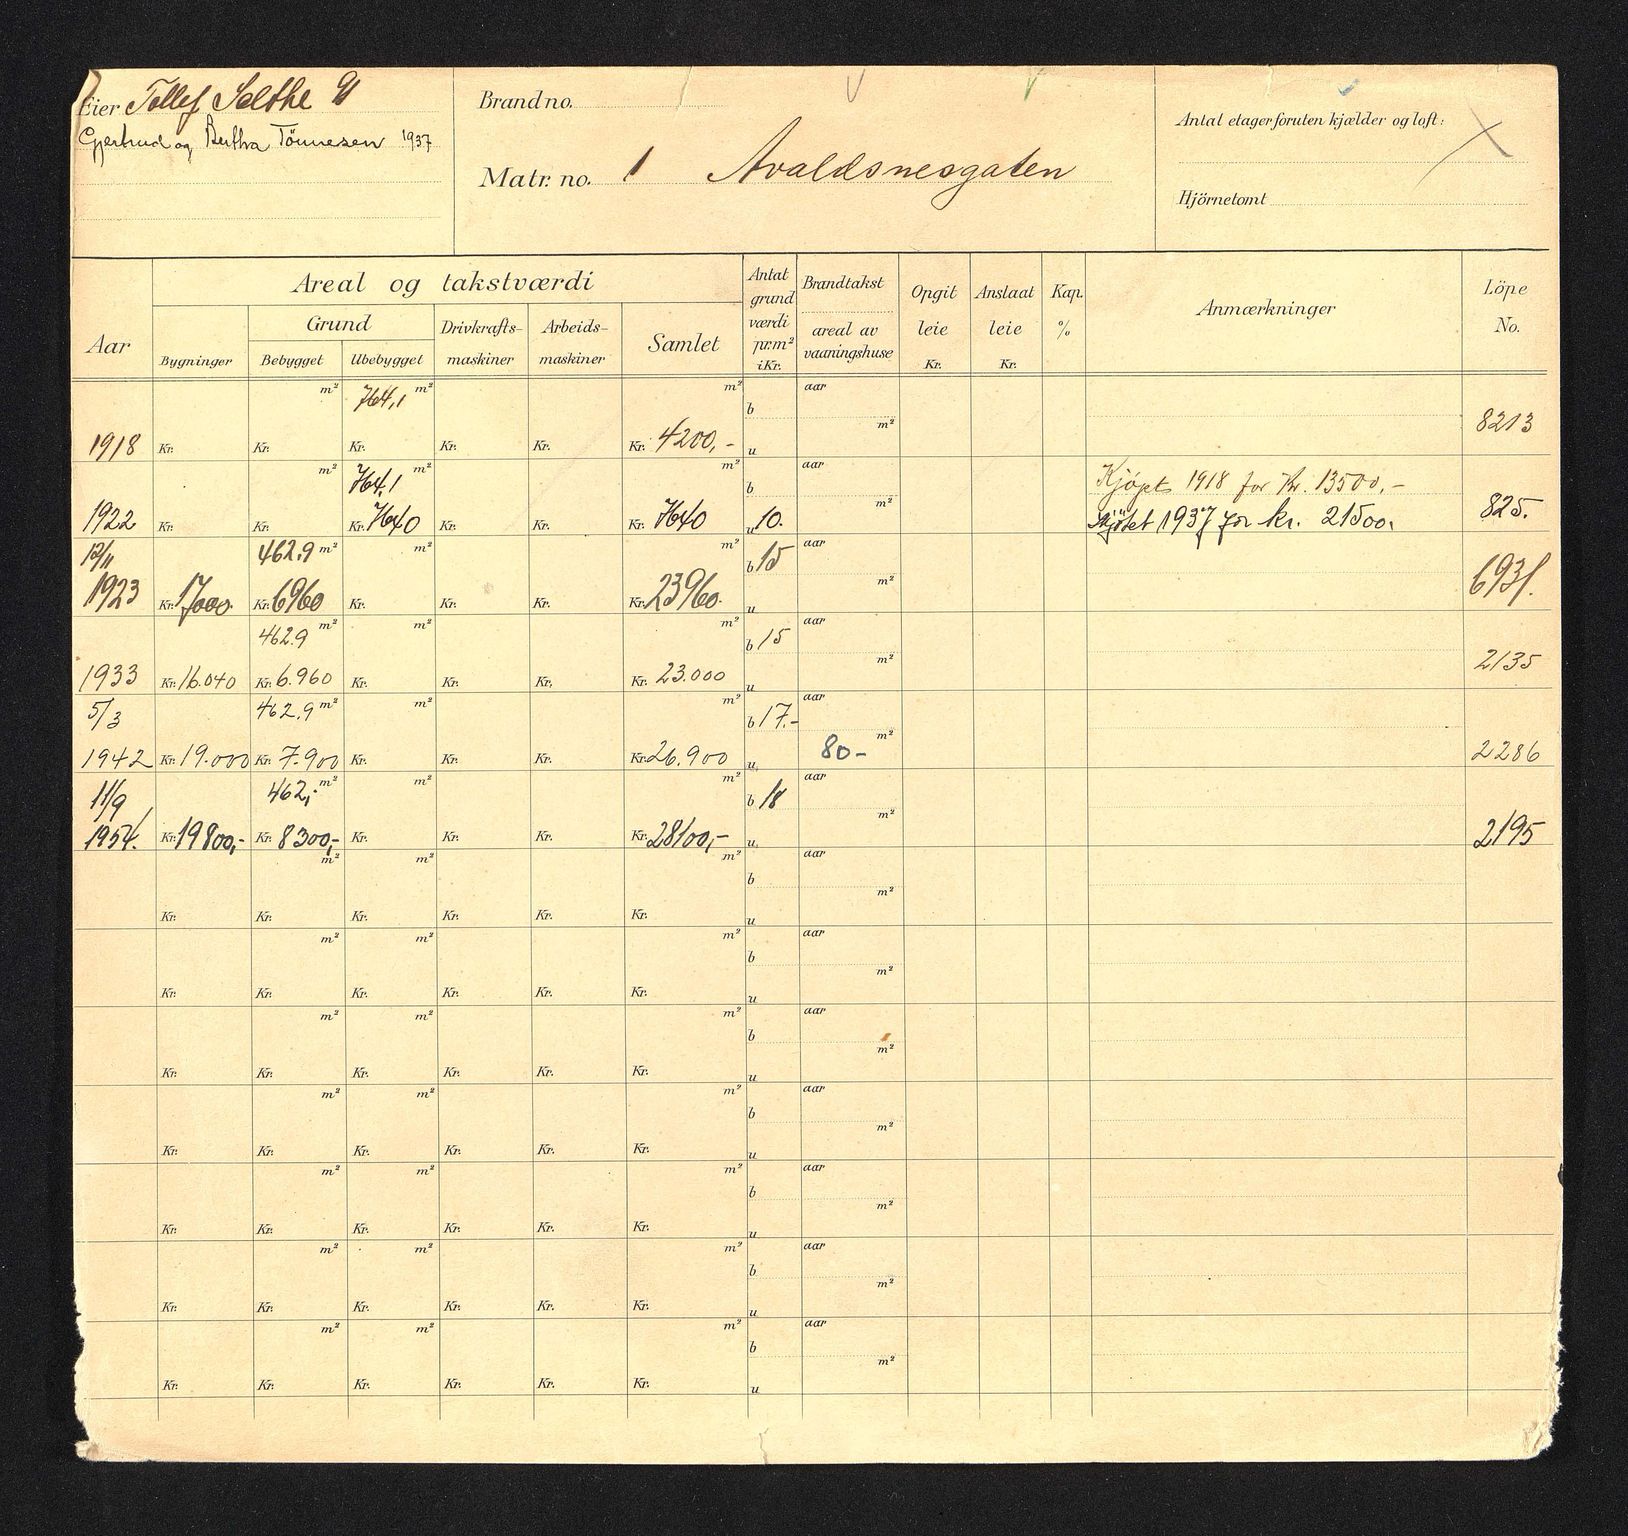 Eier Tollef Selthe
Gjertrud og Bertha Tönnesen 1937
Brandno.
Matr. no. 1 Avaldsnesgaten
Antal etager foruten kjælder og loft:
Hjörnetomt
Aar
Areal og takstværdi
Bygninger
Grund
Bebygget
Ubebygget
Drivkrafts-
maskiner
Arbeids-
maskiner
Samlet
Antat
grund
værdi
pr.m²
i Kr.
Brandtakst
areal av
vaaningshuse
Opgit
leie
Kr.
Anslaat
leie
Kr.
Kap.
%
Anmærkninger
Löpe
No.
m² 764,1 m² m² b aar
m²
1918 Kr. Kr. Kr. Kr. Kr. Kr. 4200,- u 8213
m² 764,1 m² m² b aar Kjøpt 1918 for Kr. 13500,-
m²
1922 Kr. Kr. Kr. 7640 Kr. Kr. Kr. 7640 u 10. Skjøtet 1937 for kr. 21500. 825.
12/11 462,9 m² m² m² b 15 aar
m²
1923 Kr. 17000. Kr. 6960 Kr. Kr. Kr. Kr. 23960. u 6931.
462.9 m² m² m² b 15 aar
m²
1933 Kr. 16.040 Kr. 6.960 Kr. Kr. Kr. Kr. 23.000 u 2135
5/3 462.9 m² m² m² b 17.- aar
m²
1942 Kr. 19.000 Kr. 7.900 Kr. Kr. Kr. Kr. 26.900 u 80- 2286
11/9 462,- m² m² m² b 18 aar
m²
1954. Kr. 19800,- Kr. 8300,- Kr. Kr. Kr. Kr. 28100,- u 2195
m² m² m² b aar
m²
Kr. Kr. Kr. Kr. Kr. Kr. u
m² m² m² b aar
m²
Kr. Kr. Kr. Kr. Kr. Kr. u
m² m² m² b aar
m²
Kr. Kr. Kr. Kr. Kr. Kr. u
m² m² m² b aar
m²
Kr. Kr. Kr. Kr. Kr. Kr. u
m² m² m² b aar
m²
Kr. Kr. Kr. Kr. Kr. Kr. u
m² m² m² b aar
m²
Kr. Kr. Kr. Kr. Kr. Kr. u
m² m² m² b aar
m²
Kr. Kr. Kr. Kr. Kr. Kr. u